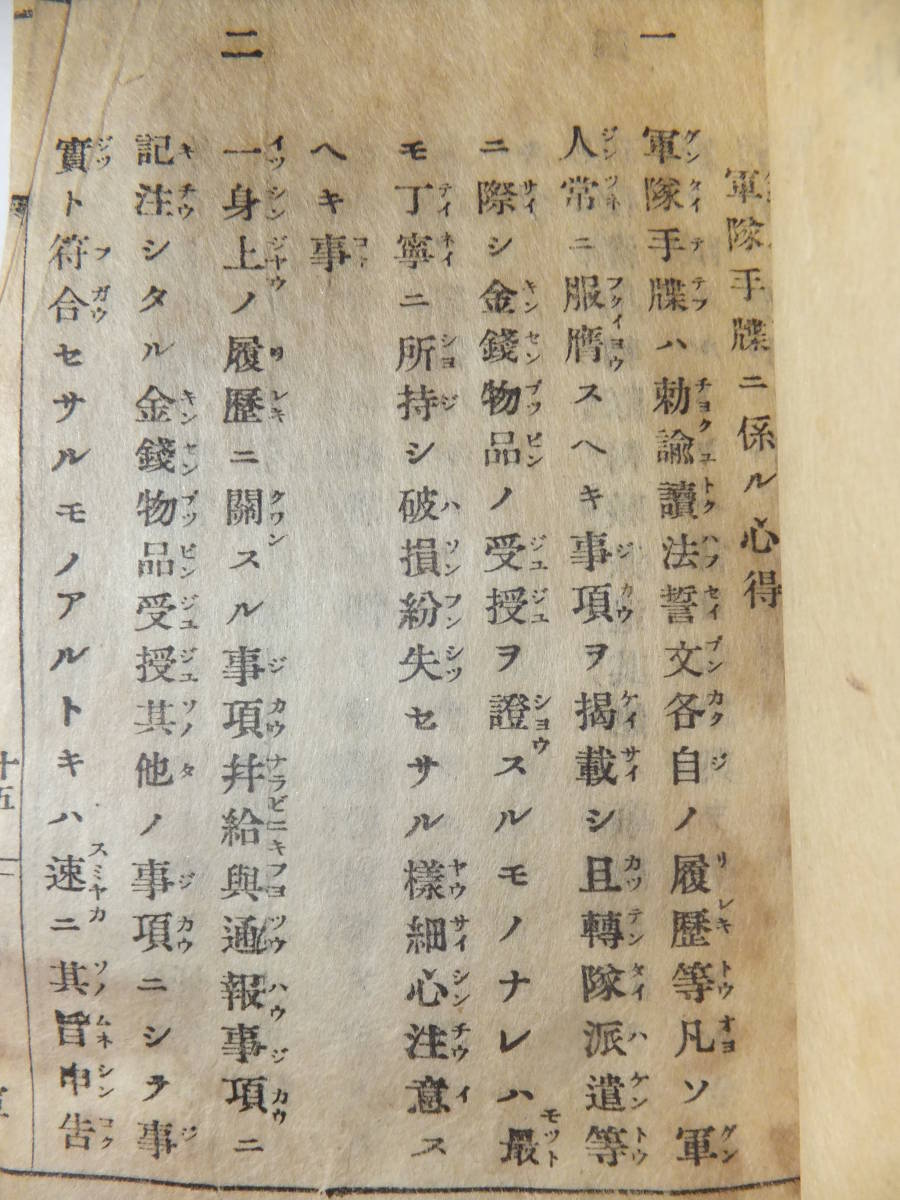 軍隊手牒ニ係ル心得
一 軍隊手牒ハ勅諭讀法誓文各自ノ履歷等凡ソ軍
人常ニ服膺スヘキ事項ヲ揭載シ且轉隊派遣等
ニ際シ金錢物品ノ受授ヲ證スルモノナレハ最
モ丁寧ニ所持シ破損紛失セサル樣細心注意ス
ヘキ事
二 一身上ノ履歷ニ關スル事項幷給與通報事項ニ
記注シタル金錢物品受授其他ノ事項ニシテ事
實ト符合セサルモノアルトキハ速ニ其旨申告
十五